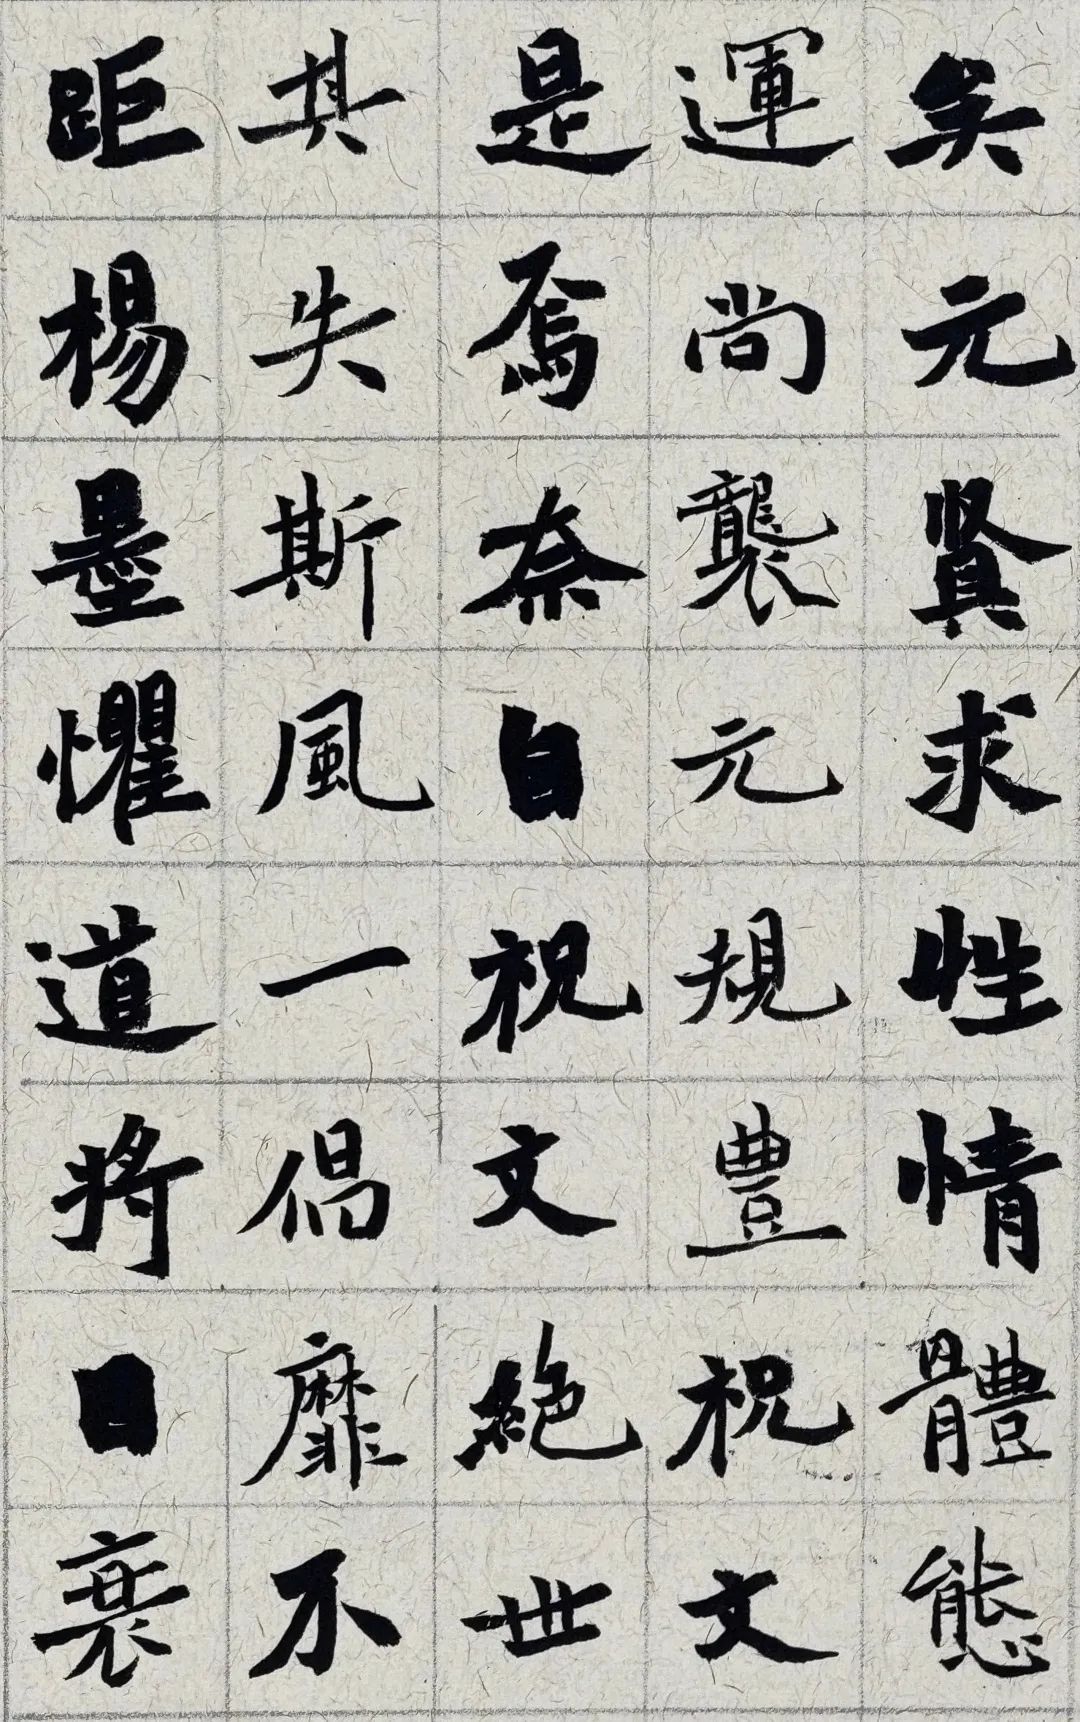 矣元賢求性情體態
運尚襲元規豊祝文
是焉奈自祝文絶世
其失斯風一倡靡不
距楊墨懼道將日衰